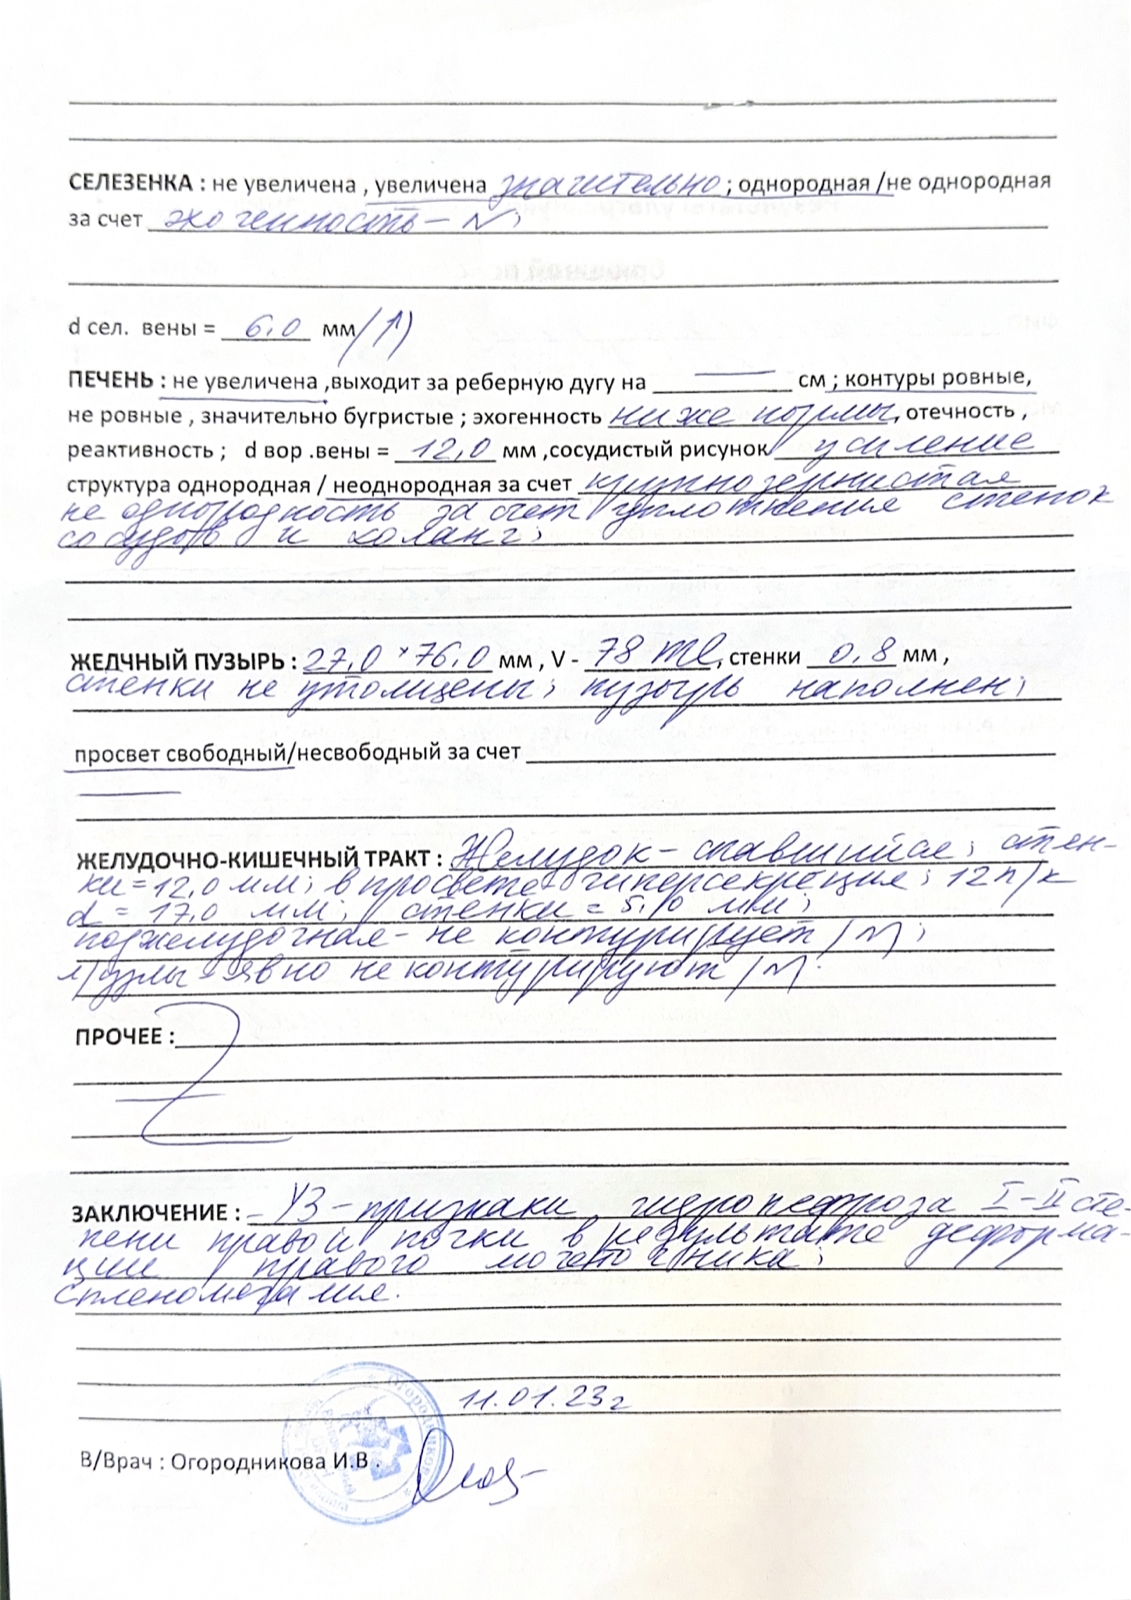 СЕЛЕЗЕНКА : не увеличена , увеличена значительно ; однородная /не однородная
за счет эхогенность – N ;
d сел. вены = 6,0 мм /↑)
ПЕЧЕНЬ : не увеличена ,выходит за реберную дугу на — см ; контуры ровные,
не ровные , значительно бугристые ; эхогенность ниже нормы, отечность ,
реактивность ; d вор .вены = 12,0 мм ,сосудистый рисунок усиление
структура однородная / неоднородная за счет крупнозернистая
не однородность за счет уплотнения стенок
сосудов и холанг;
ЖЕЛЧНЫЙ ПУЗЫРЬ : 27,0 × 76,0 мм , V - 78 ml, стенки 0,8 мм ,
стенки не утолщены; пузырь наполнен;
просвет свободный/несвободный за счет
ЖЕЛУДОЧНО-КИШЕЧНЫЙ ТРАКТ : Желудок – спавшийся; стен-
ки = 12,0 мм; в просвете гиперсекреция; 12 п/к
d = 17,0 мм; стенки = 5,0 мм;
поджелудочная – не контурирует /N/;
л/узлы – явно не контурируют /N.
ПРОЧЕЕ :
ЗАКЛЮЧЕНИЕ : – УЗ – признаки гидронефроза I – II сте-
пени правой почки в результате деформа-
ции правого мочеточника;
спленомегалия.
11.01.23 г
В/Врач : Огородникова И.В .